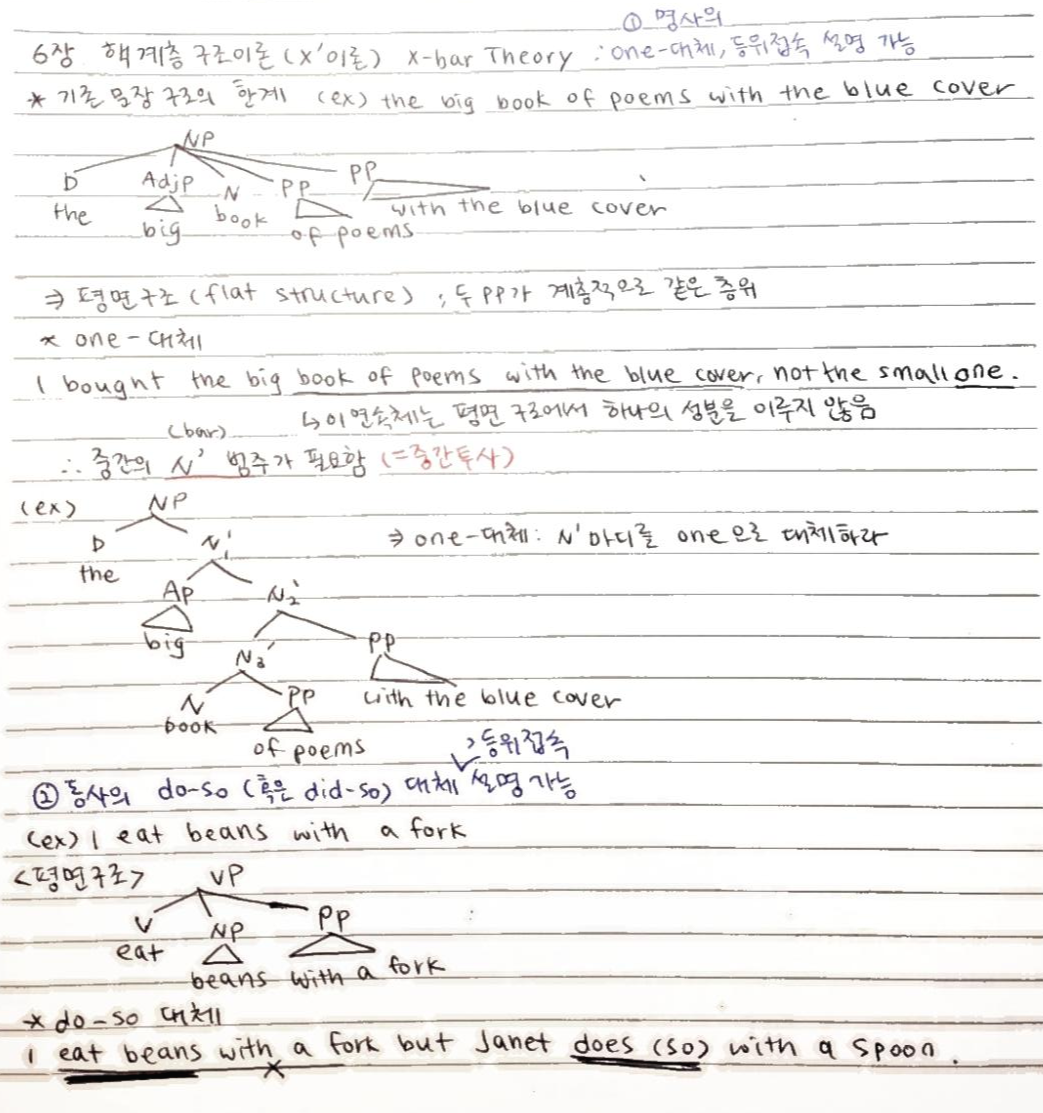 ① 명사의
6장 핵계층 구조이론 (X'이론) X-bar Theory : one-대체, 등위접속 설명 가능
* 기존 문장 구조의 한계 (ex) the big book of poems with the blue cover
NP
D AdjP N PP PP
the big book of poems with the blue cover
⇒ 평면구조 (flat structure) ; 두 PP가 계층적으로 같은 층위
* one-대체
I bought the big book of poems with the blue cover, not the small one.
↳ 이 연속체는 평면 구조에서 하나의 성분을 이루지 않음
(bar)
∴ 중간의 N' 범주가 필요함 (=중간투사)
(ex) NP
D N1' ⇒ one-대체: N' 마디를 one으로 대체하라
the
AP N2'
big
N3' PP
N PP with the blue cover
book
of poems
> 등위접속
② 동사의 do-so (혹은 did-so) 대체 설명 가능
(ex) I eat beans with a fork
<평면구조> VP
V NP PP
eat beans with a fork
* do-so 대체
I eat beans with a fork but Janet does (so) with a spoon.